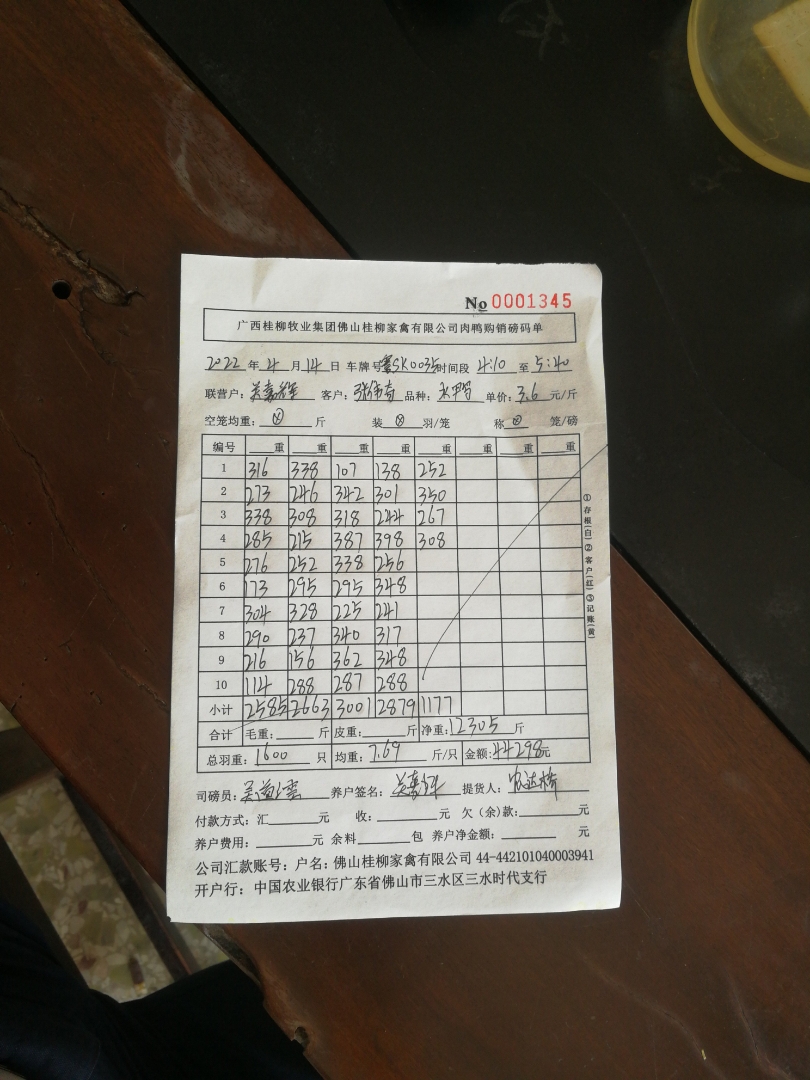 No 0001345
广西桂柳牧业集团佛山桂柳家禽有限公司肉鸭购销磅码单
2022 年 4 月 14 日 车牌号 SK0035 时间段 4:10 至 5:40
联营户: 客户: 品种: 水鸭 单价: 3.6 元/斤
空笼均重: ⊗ 斤 装 ⊗ 羽/笼 称 ⊗ 笼/磅
编号 重 重 重 重 重 重 重 重
1 316 338 107 138 252
2 273 246 342 301 350
3 338 308 318 244 267
4 285 215 387 398 308
5 276 252 338 256
6 173 295 295 348
7 304 328 225 241
8 290 237 340 317
9 216 156 362 348
10 114 288 287 288
小计 2585 2663 3001 2879 1177
合计 毛重: 斤 皮重: 斤 净重: 12305 斤
总羽重: 1600 只 均重: 7.69 斤/只 金额: 44298元
司磅员: 养户签名: 提货人:
付款方式: 汇 元 收: 元 欠(余)款: 元
养户费用: 元 余料 包 养户净金额: 元
公司汇款账号: 户名: 佛山桂柳家禽有限公司 44-442101040003941
开户行: 中国农业银行广东省佛山市三水区三水时代支行
①存根(白)②客户(红)③记账(黄)